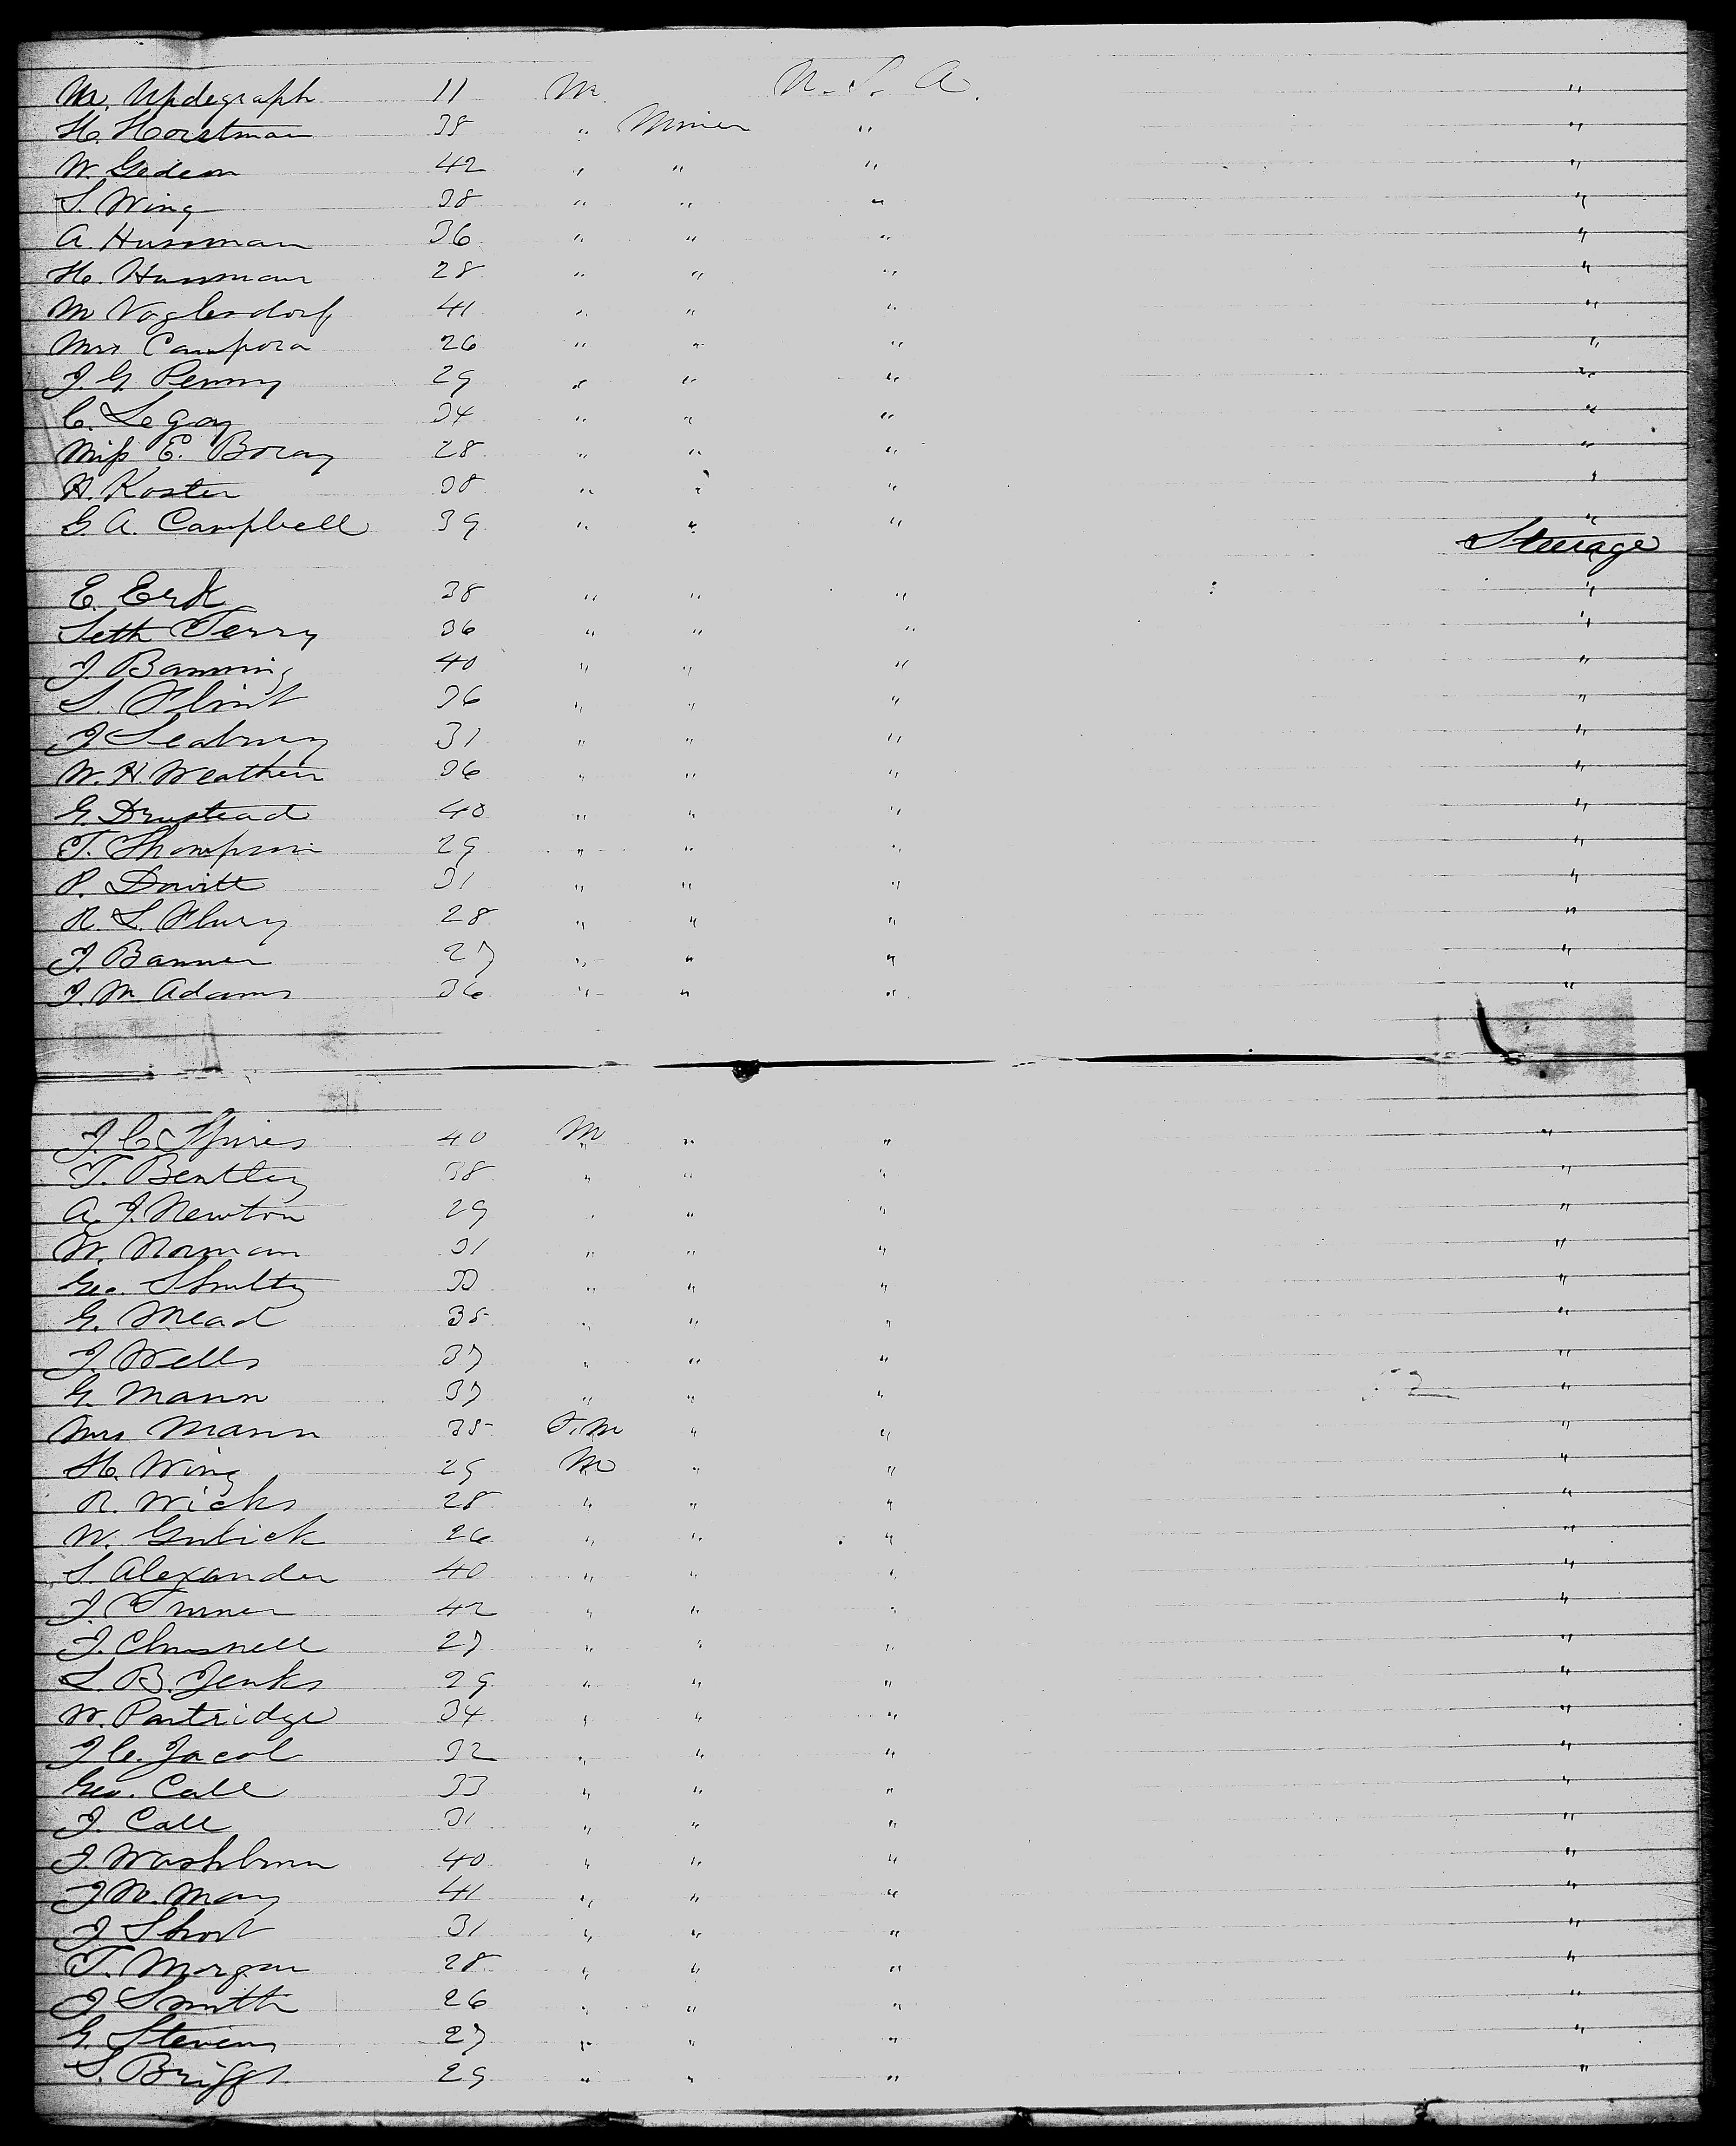 M. Updegraph 11 M U. S. A. "
H. Horstman 38 " Minier " "
W. Gedeon 42 " " " "
S. Wing 38 " " " "
A. Hussman 36 " " " "
H. Hussman 28 " " " "
M Voglesdorf 41 " " " "
Mrs Campora 26 " " " "
J. G. Penny 29 " " " "
C. Legay 34 " " " "
Miss E. Boray 28 " " " "
H. Koster 38 " " " "
G. A. Campbell 39 " " " "
Steerage
E. Erk 38 " " " "
Seth Terry 36 " " " "
J. Banning 40 " " " "
S. Flint 36 " " " "
J Seabury 31 " " " "
W. H. Weathers 36 " " " "
G. Drustead 40 " " " "
T. Thompson 29 " " " "
P. Davitt 31 " " " "
R. L. Flury 28 " " " "
J. Banner 27 " " " "
J. M Adams 36 " " " "
J. C. Spires 40 M " " "
T. Bentley 38 " " " "
A. J. Newton 29 " " " "
W. Norman 31 " " " "
Geo. Shultz 33 " " " "
G. Mead 35 " " " "
J. Wells 37 " " " "
G. Mann 37 " " " "
Mrs Mann 35 F. M " " "
H. Wing 29 M " " "
R. Wicks 28 " " " "
W. Gulick 26 " " " "
S. Alexander 40 " " " "
J. Turner 42 " " " "
J. 27 " " " "
L. B. Jenks 29 " " " "
W. Partridge 34 " " " "
J C. Jacob 32 " " " "
Geo. Call 33 " " " "
J. Call 31 " " " "
J. Washburn 40 " " " "
J W. May 41 " " " "
J Short 31 " " " "
T. Morgan 28 " " " "
J Smith 26 " " " "
G. Stevens 27 " " " "
S. Briggs 29 " " " "